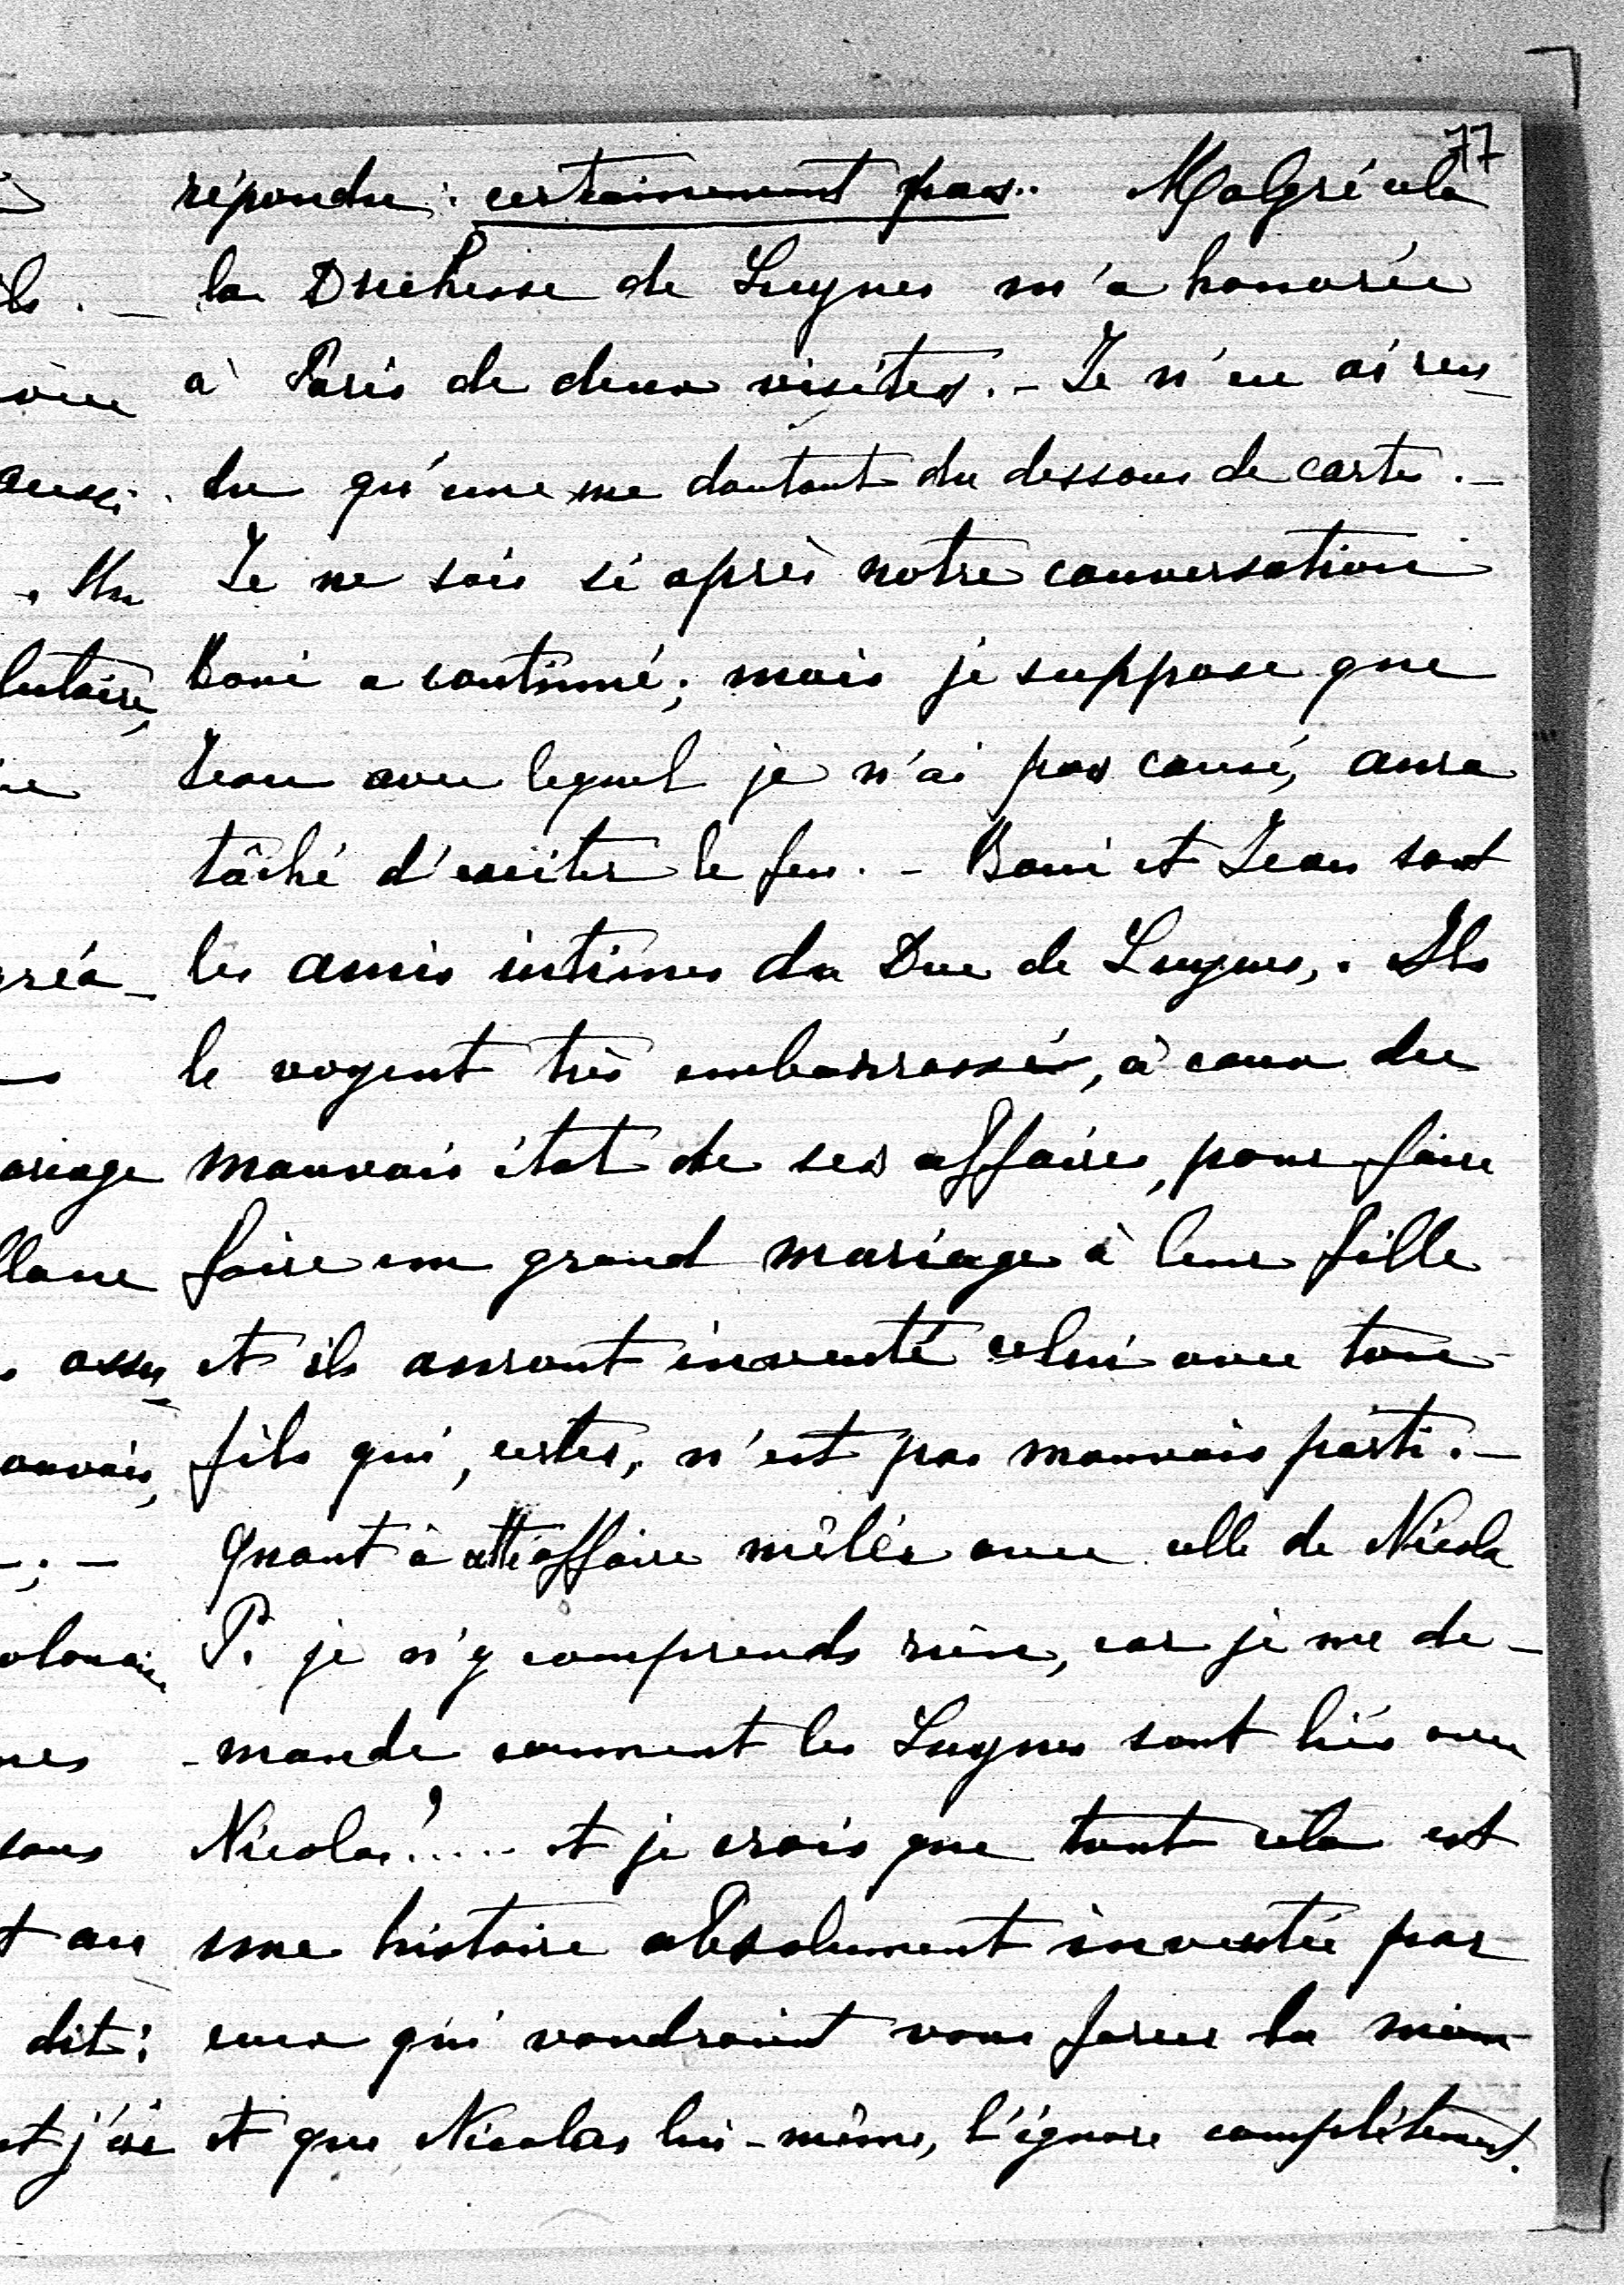 77
répondu : certainement pas.. Malgré cela
la Duchesse de Luynes m'a honorée
à Paris de deux visites. - Je n'en ai ren_
du qu'une me doutant du dessous de carte. _
Je ne sais si après notre conversation
Boni a continué ; mais je suppose que
Jean avec lequel je n'ai pas causé, aura
tâché d'exciter le feu. - Boni et Jean sont
les amis intimes du Duc de Luynes, . Ils
le voyent très embarrassés, à cause du
mauvais état de ses affaires, pour faire
faire un grand mariage à leur fille
et ils auront inventé celui avec ton
fils qui, certes, n'est pas mauvais parti. _
Quant à cette affaire mêlée avec celle de Nicola
P. je n'y comprends rien, car je me de_
-mande comment les Luynes sont liés avec
Nicolas !..... et je crois que tout cela est
une histoire absolument inventée par
ceux qui voudraient vous forcer la main
et que Nicolas lui-même, l'ignore complètement.
ils . _
aussi .
. Un
lutaire,
réa_
ariage
assez
mauvais,
_ ; _
sous
t au
dit :
et j'ai